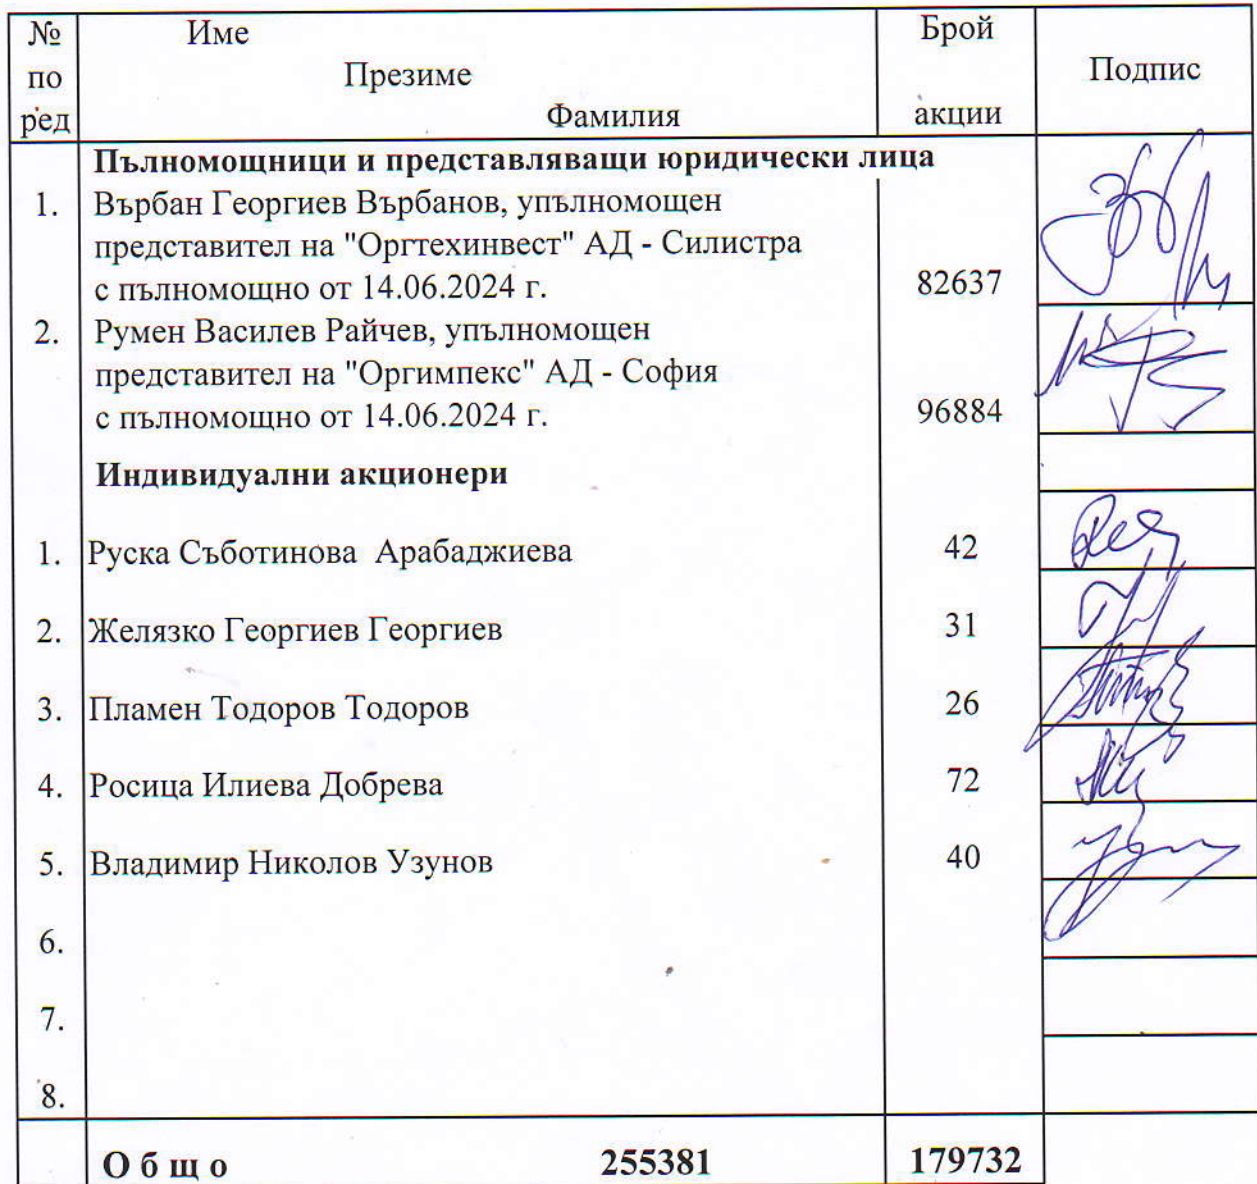 № Име Брой
по Презиме Подпис
ред Фамилия акции
Пълномощници и представляващи юридически лица
1. Върбан Георгиев Върбанов, упълномощен
представител на "Оргтехинвест" АД - Силистра
с пълномощно от 14.06.2024 г. 82637
2. Румен Василев Райчев, упълномощен
представител на "Оргимпекс" АД - София
с пълномощно от 14.06.2024 г. 96884
Индивидуални акционери
1. Руска Съботинова Арабаджиева 42
2. Желязко Георгиев Георгиев 31
3. Пламен Тодоров Тодоров 26
4. Росица Илиева Добрева 72
5. Владимир Николов Узунов 40
6.
7.
8.
О б щ о 255381 179732